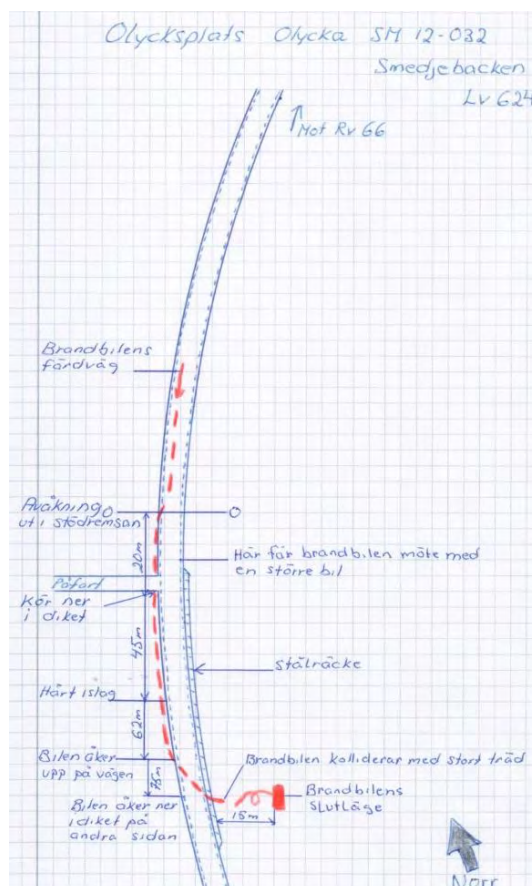 Olycksplats Olycka SM 12-032
Smedjebacken
Lv 624
Mot Rv 66
Brandbilens
färdväg
Avåkning
ut i stödremsan
20m
Här får brandbilen möte med
en större bil
Påfart
Kör ner
i diket
45m
Stålräcke
Hårt islag
62m
Bilen åker
upp på vägen
Brandbilen kolliderar med stort träd
75m
Brandbilens
slutläge
Bilen åker ner
i diket på
andra sidan
15m
Norr